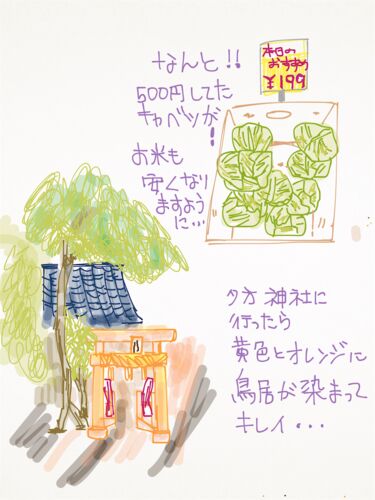 本日の
おすすめ
¥199
なんと!!
500円してた
キャベツが!
お米も
安くなり
ますように…
夕方 神社に
行ったら
黄色とオレンジに
鳥居が染まって
キレイ・・・